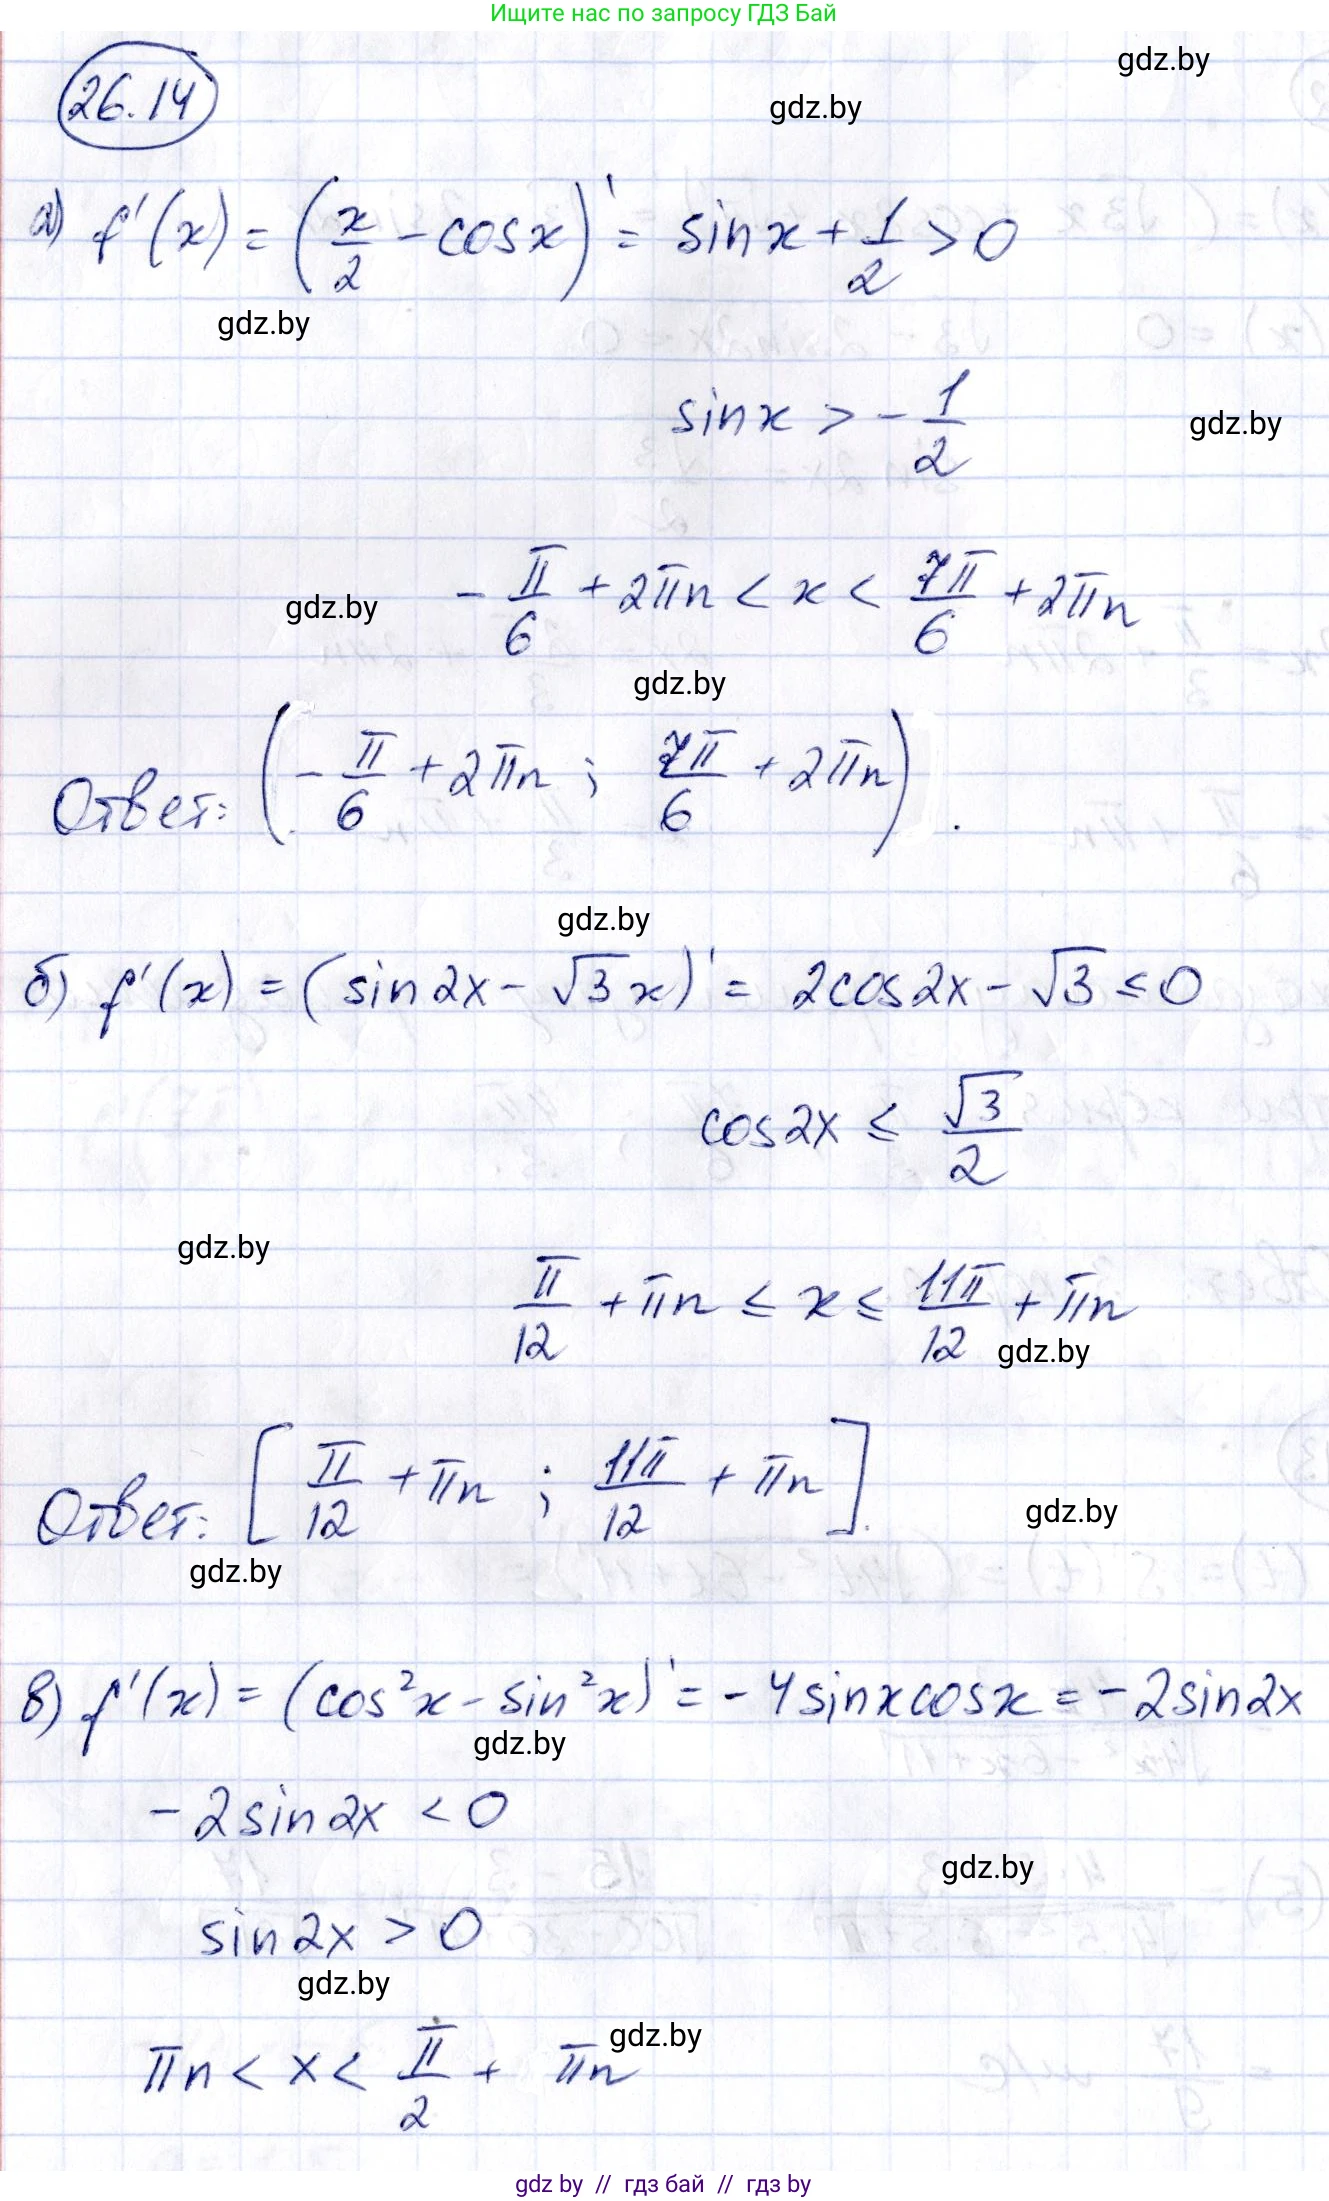 Ищите нас по запросу ГДЗ Бай
gdz.by
26.14
gdz.by
а) f'(x) = (x/2 - cosx)' = sinx + 1/2 > 0
gdz.by
sinx > - 1/2
gdz.by
- π/6 + 2πn < x < 7π/6 + 2πn
gdz.by
gdz.by
Ответ: (- π/6 + 2πn ; 7π/6 + 2πn).
gdz.by
б) f'(x) = (sin2x - √3x)' = 2cos2x - √3 ≤ 0
cos2x ≤ √3/2
gdz.by
π/12 + πn ≤ x ≤ 11π/12 + πn
gdz.by
Ответ: [π/12 + πn ; 11π/12 + πn].
gdz.by
gdz.by
в) f'(x) = (cos²x - sin²x)' = - 4sinxcosx = - 2sin2x
gdz.by
- 2sin2x < 0
gdz.by
sin2x > 0
gdz.by
gdz.by
πn < x < π/2 + πn
gdz by // гдз бай // гдз by